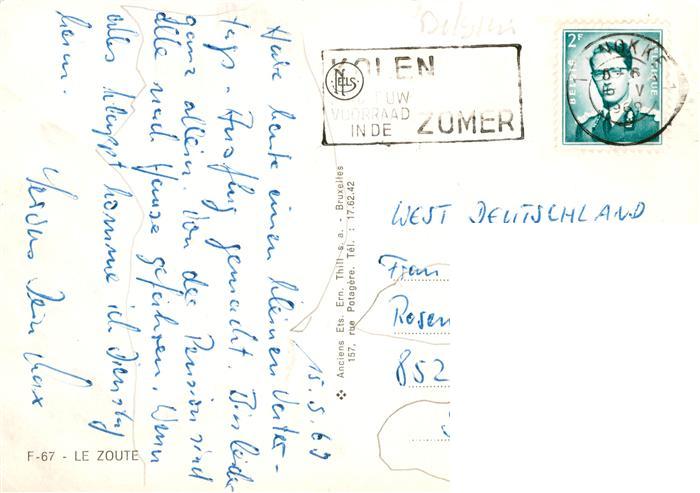 Belgien
KOLEN
NELS
UW
VOORRAAD
IN DE ZOMER
2F
BELGIE BELGIQUE
KNOKKE
15.5.69
Habe heute einen kleinen Unter-
tags-Ausflug gemacht. Bin leider
ganz allein. Von der Pension sind
alle nach Hause gefahren. Wenn
alles klappt komme ich Dienstag
heim.
Servus Dein Max
Anciens Ets. Ern. Thill s.a. - Bruxelles
157, rue Potagère. Tél. : 17.62.42
WEST DEUTSCHLAND
Frau
Rosen
852
F-67 - LE ZOUTE